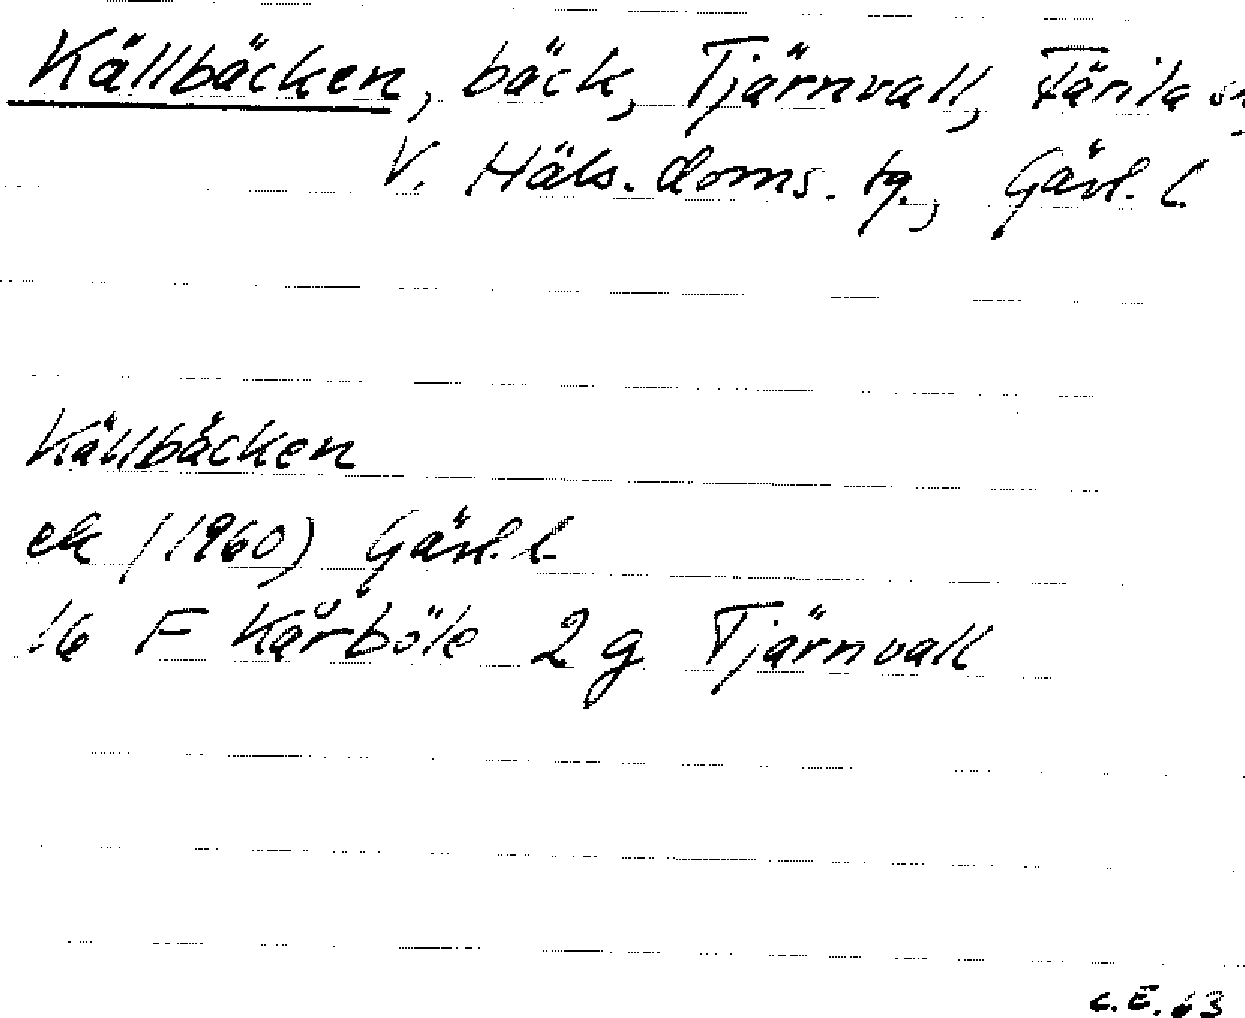 Källbäcken, bäck, Tjärnvall, Färila sn,
V. Häls. doms. tg., Gävl. l.
Källbäcken
ek (1960) Gävl. l.
16 F Kårböle 2 g Tjärnvall
C.E. 63